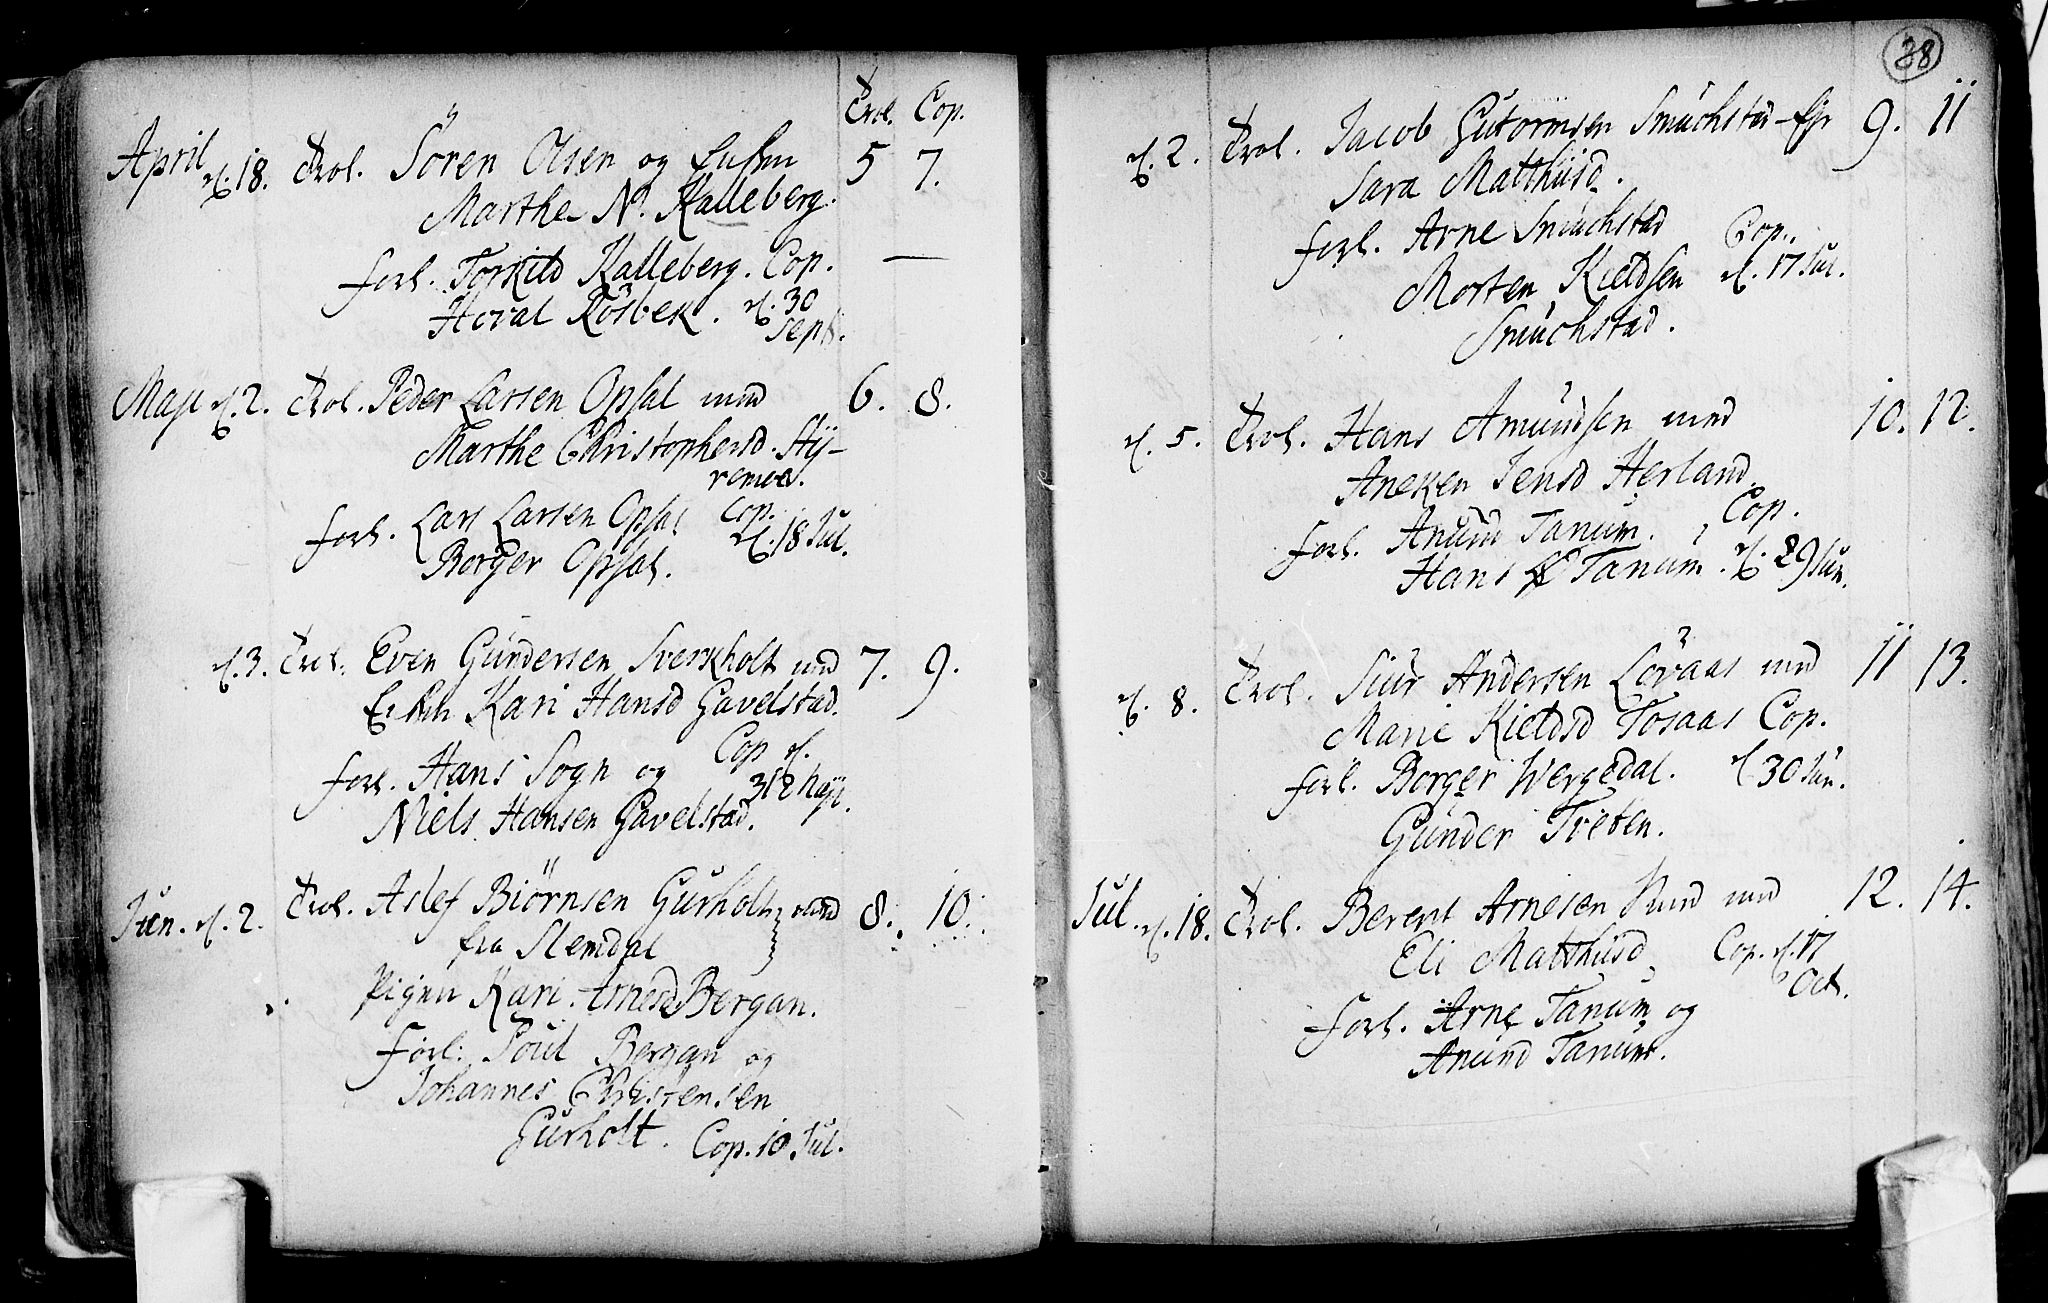 Trol. Cop.
April d. 18. Trol. Sören Olsen og Enken 5 7.
Marthe N. Kalleberg.
forl. Torkild Kalleberg. Cop. —
Hoval Rösbek. d. 30
Sept.
Maji d. 2. Trol. Peder Larsen Opsal med 6. 8.
Marthe Christophersd. Stÿ-
remoe.
forl. Lars Larsen Opsal Cop.
Borger Opsal. d. 18 Jul.
d. 3. Trol. Even Gundersen Sverkholt med 7. 9.
Enken Kari Hansd Gavelstad.
forl. Hans Sogn og Cop d.
Niels Hansen Gavelstad. 31 Maji.
Jun. d. 2. Trol. Aslef Biörnsen Gurholt med 8. 10.
fra Slemdal
Pigen Kari Arnesd Bergan.
forl. Poul Bergan og
Johannes Christensen
Gurholt. Cop. 10. Jul.
38
d. 2. Trol. Jacob Gutormsen Smuchstad 9. 11
Sara Matthiisd.
forl. Arne Smuchstad Cop.
Morten Kieldsen d. 17 Jul.
Smuchstad.
d. 5. Trol. Hans Amundsen med 10. 12.
Aneken Jensd Herland.
forl. Anund Tanum. Cop.
Hans Tanum. d. 29 Jun.
d. 8. Trol. Siur Andersen Lövaas med 11 13.
Marie Kieldsd Tosaas Cop.
forl. Borger Wergedal. d 30 Jun.
Gunder Tveten.
Jul. d. 18. Trol. Berent Arnesen Rund med 12. 14.
Eli Matthiisd Cop. d. 17
Oct.
forl. Arne Tanum og
Anund Tanum.